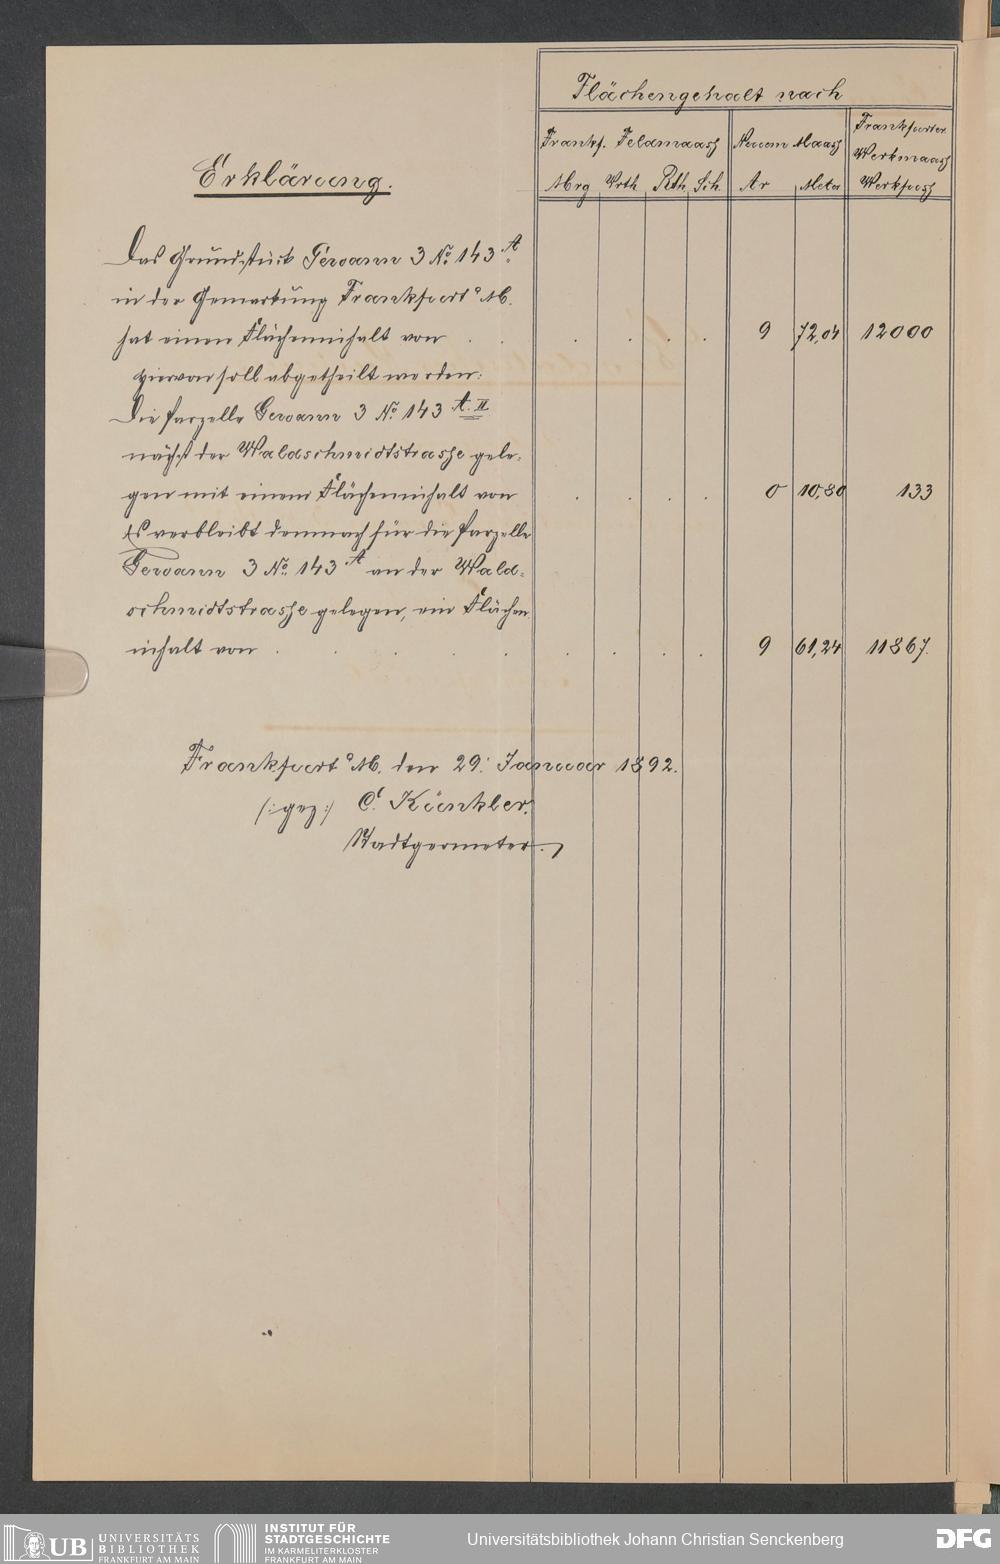 Flächengehalt nach
Frankf. Feldmaass Neuem Maass Frankfurter Werkmaass
Mrg Vrth Rth Sch. Ar Meter Werkfuss
Erklärung.
Das Grundstück Gewann 3 No. 143 A.
in der Gemarkung Frankfurt a. M.
hat einen Flächeninhalt von . . . . . . 9 72,04 12000
hiervon soll abgetheilt werden:
Die Parzelle Gewann 3 No. 143 A. II
nächst der Waldschmidtstrasse gele-
gen mit einem Flächeninhalt von . . . . 0 10,80 133
Es verbleibt demnach für die Parzelle
Gewann 3 No. 143 A an der Wald-
schmidtstrasse gelegen, ein Flächen
inhalt von . . . . . . . . . 9 61,24 11867.
Frankfurt a. M. den 29. Januar 1892.
(: gez :) C. Künkler.
Stadtgeometer.
UB UNIVERSITÄTS
BIBLIOTHEK
FRANKFURT AM MAIN
INSTITUT FÜR
STADTGESCHICHTE
IM KARMELITERKLOSTER
FRANKFURT AM MAIN
Universitätsbibliothek Johann Christian Senckenberg
DFG